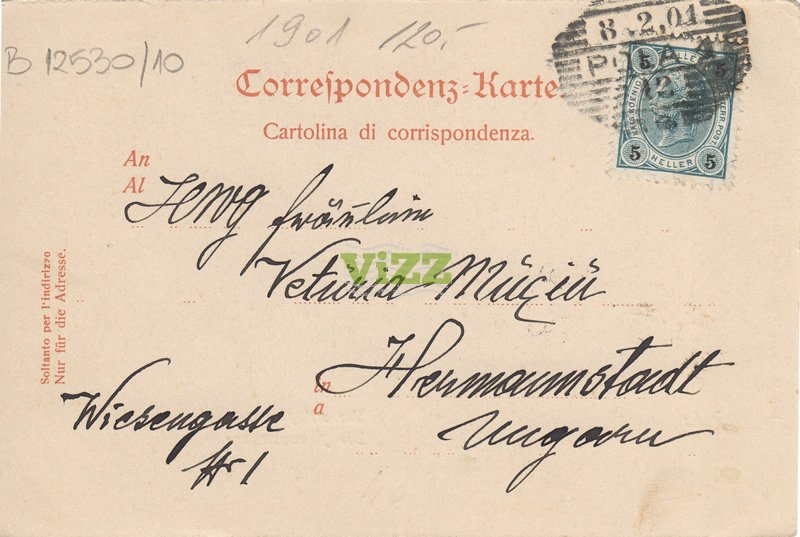 B 12530/10
1901 120.-
8.2.01
POLA
12
5 HELLER 5
5 HELLER 5
Correſpondenz-Karte
Cartolina di corrispondenza.
An
Al
Hwg Fräulein
ViZZ
Veturia Müçiü
in
a
Hermannstadt
Ungarn
Wiesengasse
Nr 1
Soltanto per l'indirizzo
Nur für die Adresse.